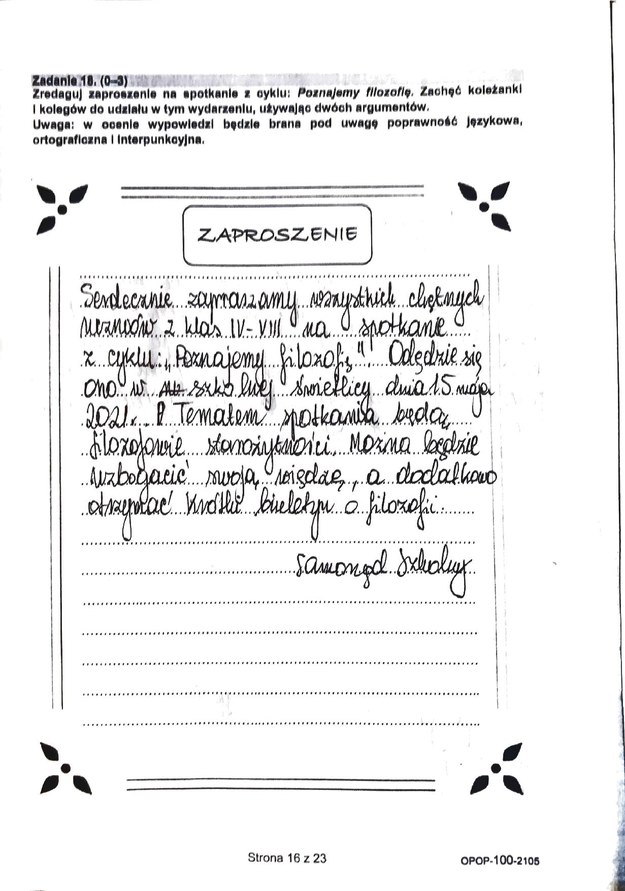 Zadanie 18. (0–3)
Zredaguj zaproszenie na spotkanie z cyklu: Poznajemy filozofię. Zachęć koleżanki
i kolegów do udziału w tym wydarzeniu, używając dwóch argumentów.
Uwaga: w ocenie wypowiedzi będzie brana pod uwagę poprawność językowa,
ortograficzna i interpunkcyjna.
ZAPROSZENIE
Serdecznie zapraszamy wszystkich chętnych
uczniów z klas IV-VIII na spotkanie
z cyklu: „Poznajemy filozofię". Odędzie się
ono w szkolnej świetlicy dnia 15 maja
2021r. Tematem spotkania będą
filozofowie starożytności. Można będzie
wzbogacić swoją wiedzę, a dodatkowo
otrzymać krótki biuletyn o filozofii.
Samorząd Szkolny
Strona 16 z 23
OPOP-100-2105